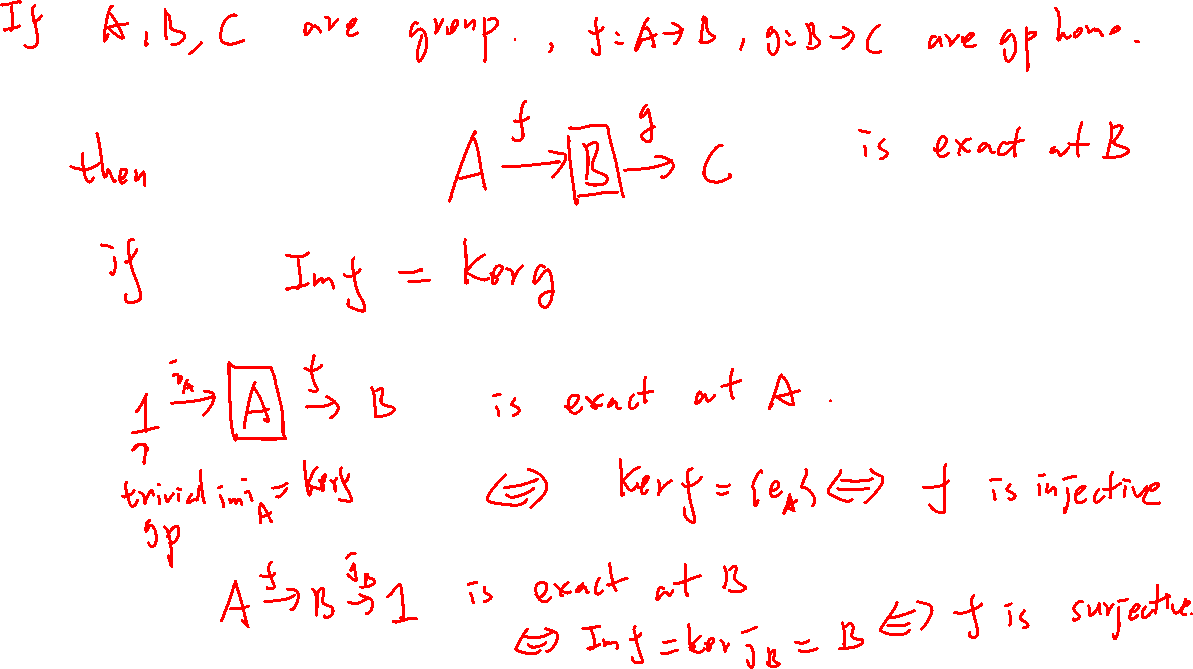 If A, B, C are group., f: A → B, g: B → C are gp homo.
then A \xrightarrow{f} B \xrightarrow{g} C is exact at B
if Im f = ker g
1 \xrightarrow{i_A} A \xrightarrow{f} B is exact at A.
trivial gp im i_A = ker f ⇔ ker f = {e_A} ⇔ f is injective
A \xrightarrow{f} B \xrightarrow{j_B} 1 is exact at B
⇔ Im f = ker j_B = B ⇔ f is surjective.